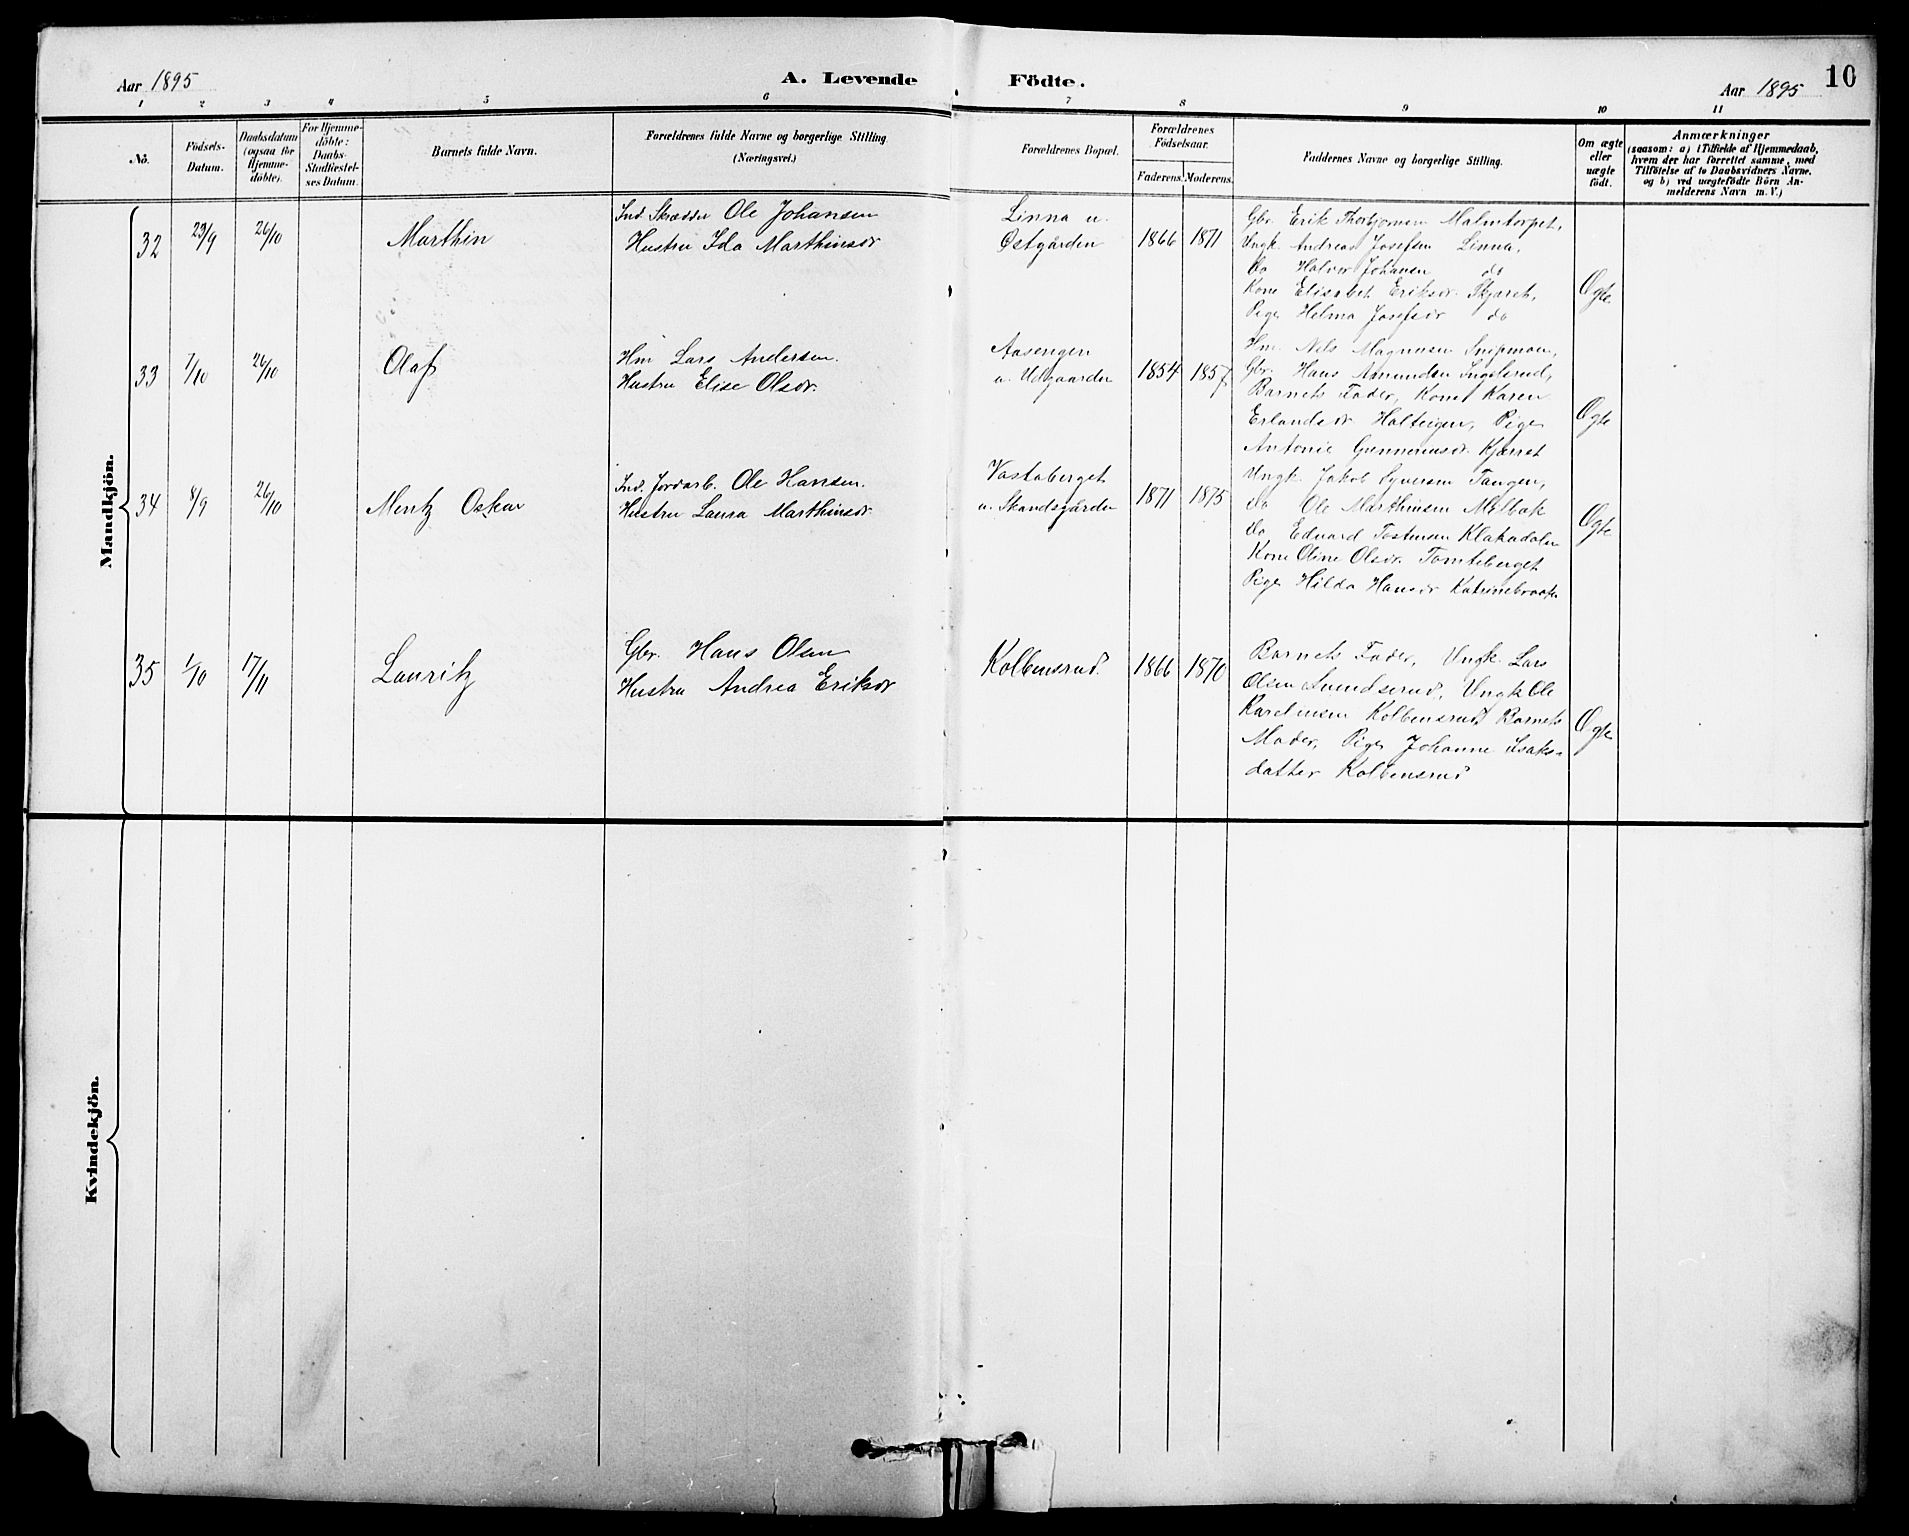 Aar 1895
A. Levende Födte.
Aar 1895
10
1 2 3 4 5 6 7 8 9 10 11
No.
Födsels-
Datum.
Daabsdatum
(ogsaa for
Hjemme-
döbte).
For Hjemme-
döbte:
Daabs-
Stadfæstel-
ses Datum.
Barnets fulde Navn.
Forældrenes fulde Navne og borgerlige Stilling
(Næringsvei.)
Forældrenes Bopæl.
Forældrenes
Födselsaar.
Faderens. Moderens.
Faddernes Navne og borgerlige Stilling.
Om ægte
eller
uægte
födt.
Anmærkninger
(saasom: a) i Tilfælde af Hjemmedaab,
hvem der har forrettet samme, med
Tilföielse af to Daabsvidners Navne.
og b) ved uægtefödte Börn An-
melderens Navn m. V.)
Mandkjön.
32 23/9 26/10 Marthin
Ind. Skrædder Ole Johansen
Hustru Ida Marthinsdr
Linna u.
Østgården
1866 1871
Gbr. Erik Thorbjornsen Malmtorpet,
Ungk. Andreas Josefsen Linna,
do Halvor Johansen do
Kone Elisabet Eriksdr. Skjæret,
Pige Helma Josefsdr do
Ægte
33 7/10 26/10 Olaf
Hm Lars Andersen.
Hustru Elise Olsdr.
Aasengen
u. Udgaarden
1854 1857
Hm. Nils Magnusen Snipmoen,
Gbr. Hans Amundsen Ingelsrud,
Barnets Fader, Kone Karen
Erlandsdr Halteigen, Pige
Antonie Gunneriusdr. Kjærret
Ægte
34 8/9 26/10 Mentz Oskar
Ind. Jordarb. Ole Hansen.
Hustru Laura Marthinsdr
Vastaberget
u. Skandsgården
1871 1875
Ungk. Jakob Syversen Tangen,
do Ole Marthinsen Melbak
do Edvard Tostensen Klakadalen
Kone Oline Olsdr. Tomteberget
Pige Hilda Hansdr Katrinebraaten
Ægte
35 1/10 17/11 Lauritz
Gbr. Hans Olsen
Hustru Andrea Eriksdr
Kolbensrud.
1866 1870
Barnets Fader, Ungk. Lars
Olsen Svendserud, Ungk Ole
Karelinsen Kolbensrud Barnets
Moder, Pige Johanne Isaks-
datter Kolbensrud
Ægte
Kvindekjön.